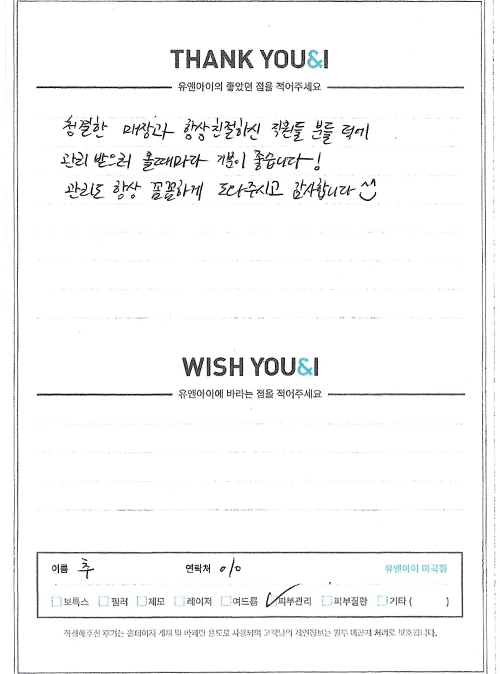 THANK YOU&I
유앤아이의 좋았던 점을 적어주세요
청결한 매장과 항상 친절하신 직원들 분들 덕에
관리 받으러 올때마다 기분이 좋습니다!
관리도 항상 꼼꼼하게 도와주시고 감사합니다 ^^
WISH YOU&I
유앤아이에 바라는 점을 적어주세요
이름 추 연락처 010 유앤아이 마곡점
보톡스 필러 제모 레이저 여드름 ✓피부관리 피부질환 기타 ( )
작성해주신 후기는 홈페이지 게재 및 마케팅 용도로 사용되며 고객님의 개인정보는 일부 비공개 처리로 보호됩니다.